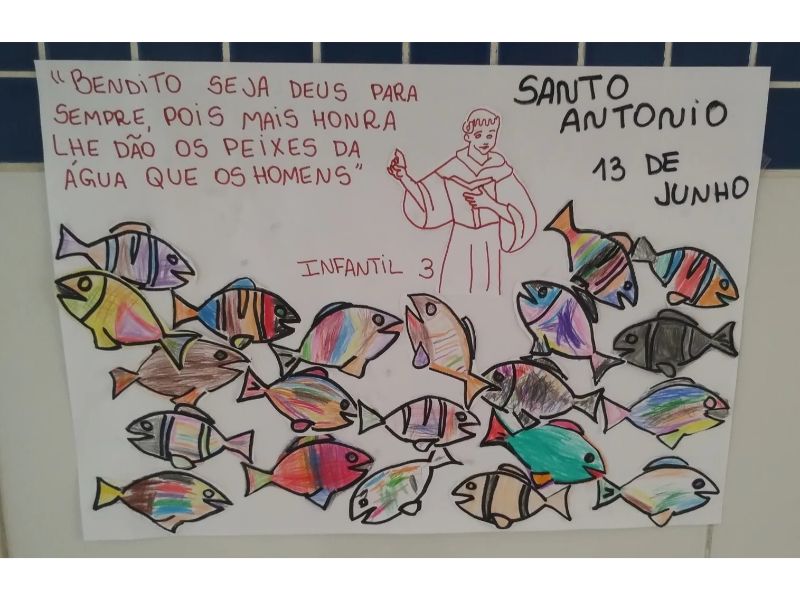 "BENDITO SEJA DEUS PARA
SEMPRE, POIS MAIS HONRA
LHE DÃO OS PEIXES DA
ÁGUA QUE OS HOMENS"
SANTO
ANTONIO
13 DE
JUNHO
INFANTIL 3